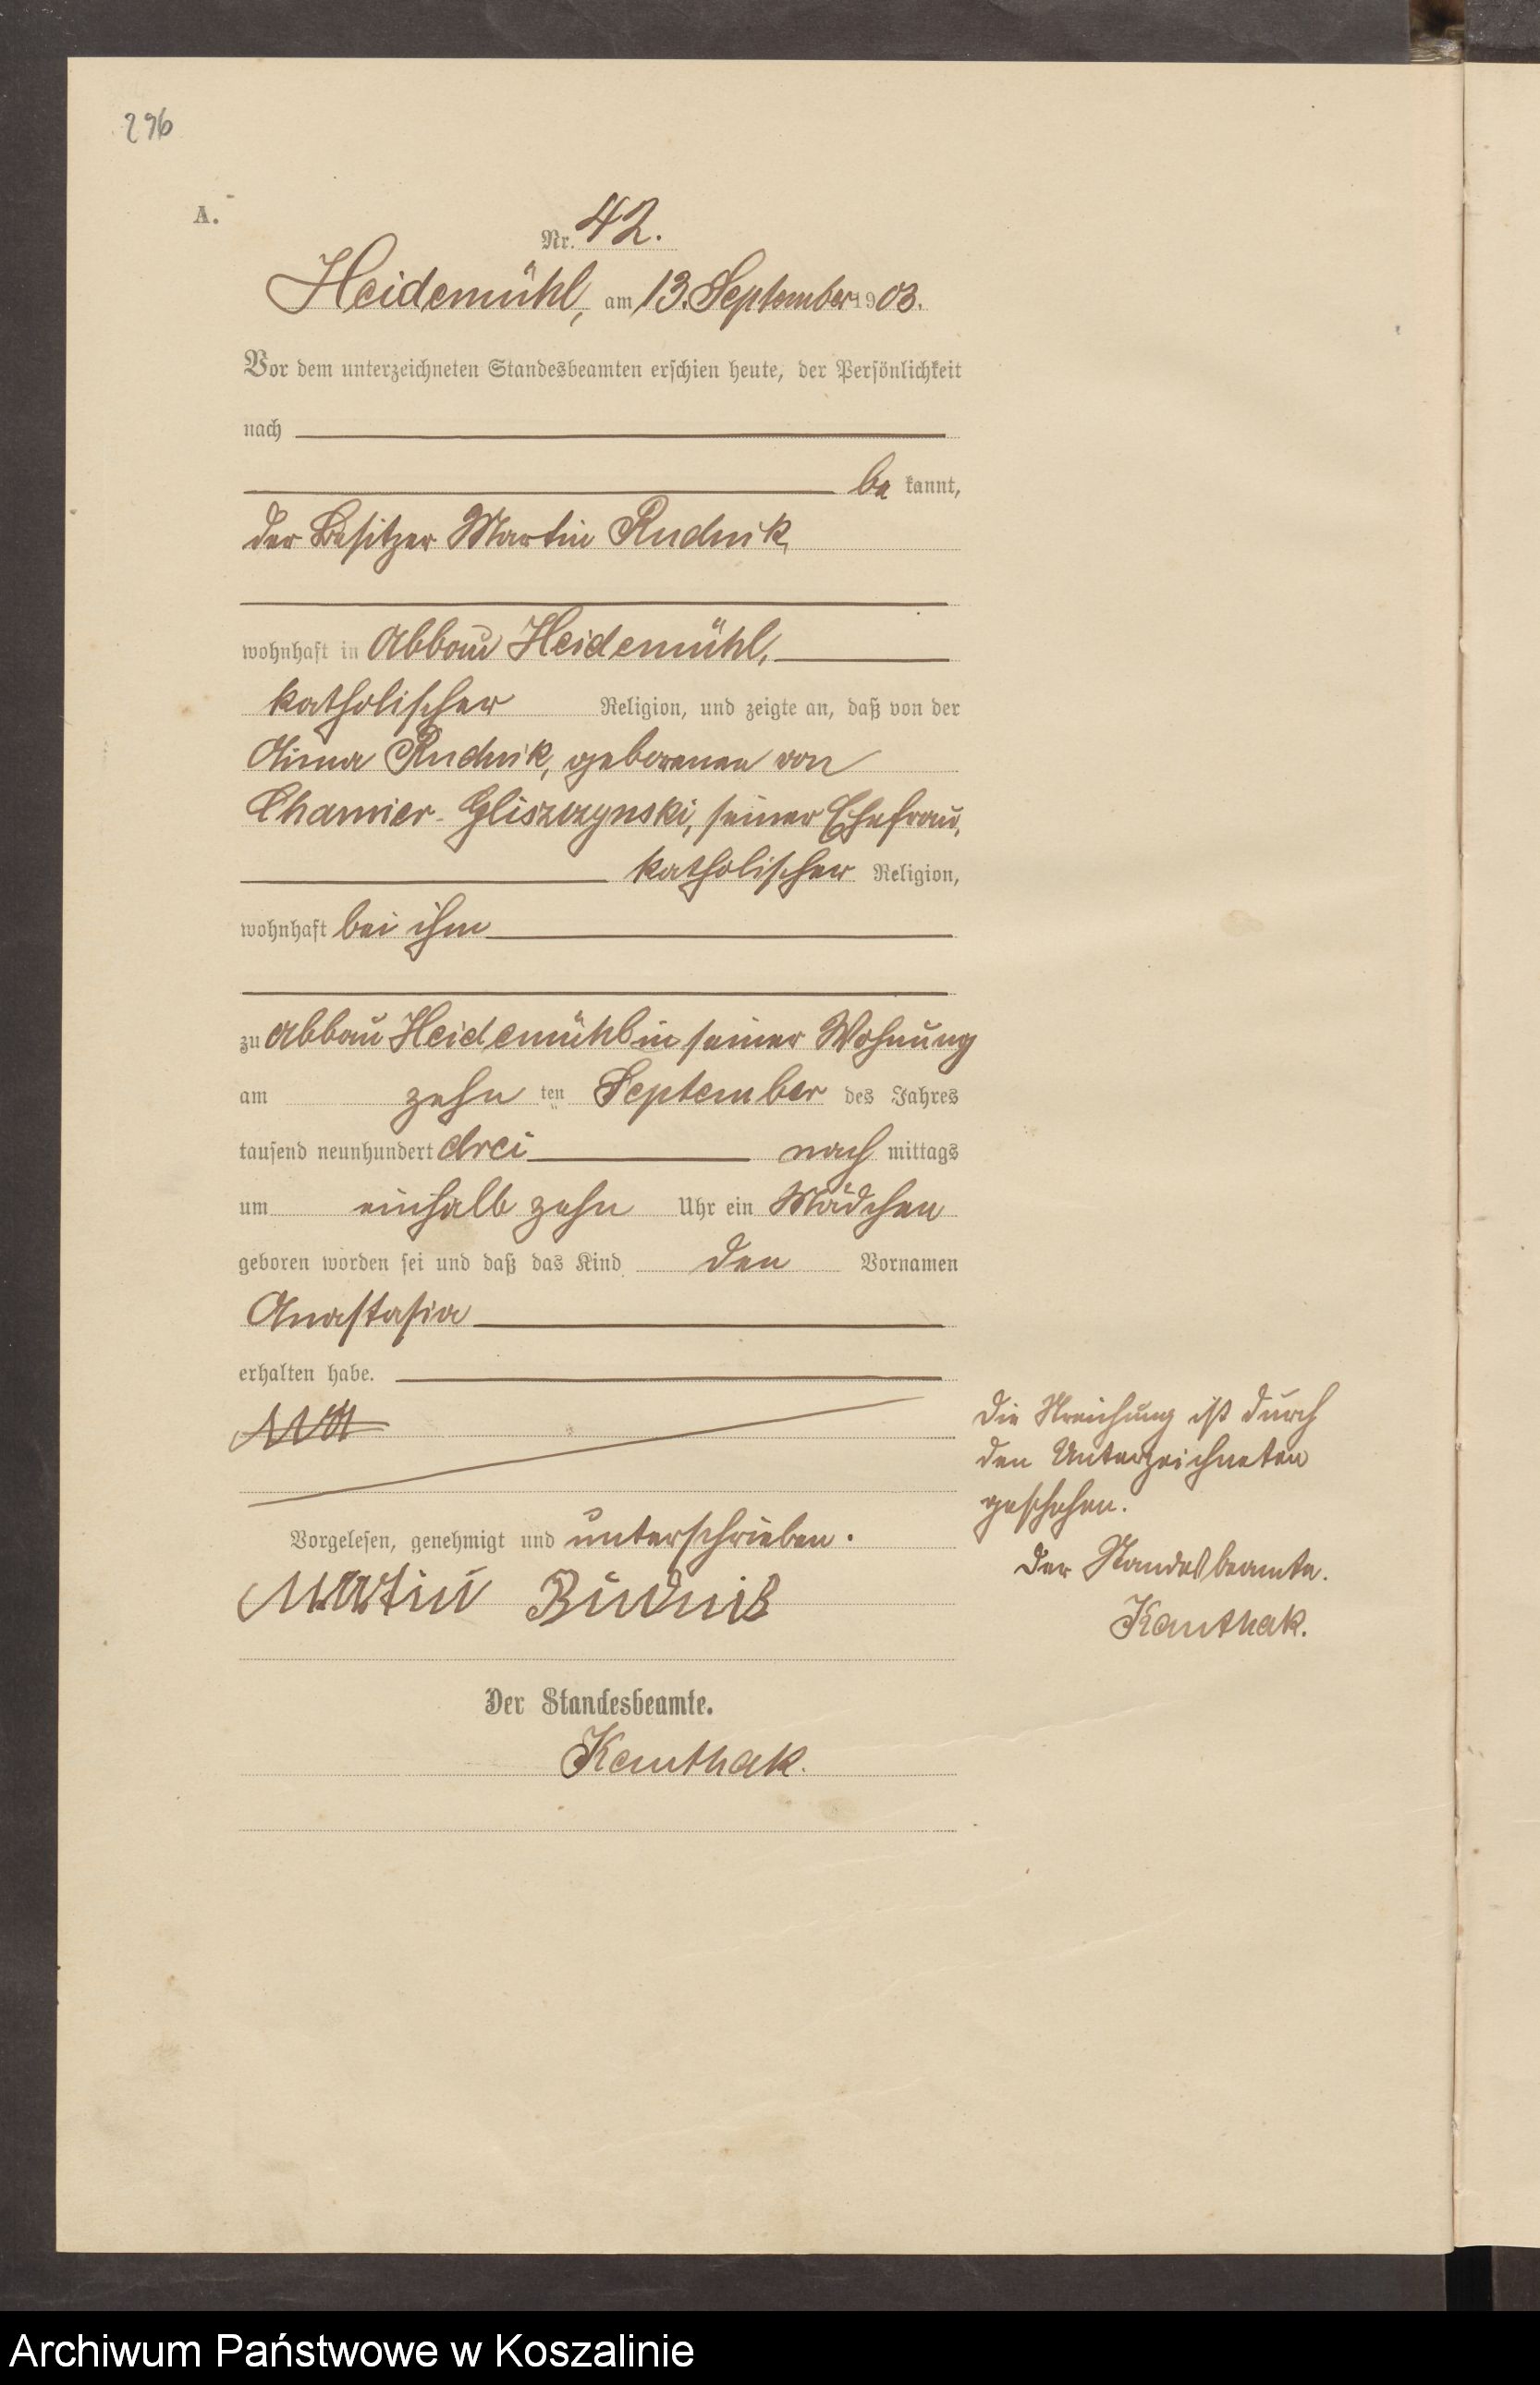 296
A.
Nr. 42.
Heidemühl, am 13. September 1903.
Vor dem unterzeichneten Standesbeamten erschien heute, der Persönlichkeit
nach
be kannt,
der Besitzer Martin Rudnik,
wohnhaft in Abbau Heidemühl,
katholischer Religion, und zeigte an, daß von der
Anna Rudnik, geborenen von
Chamier-Gliszczynski, seiner Ehefrau,
katholischer Religion,
wohnhaft bei ihm
zu Abbau Heidemühl in seiner Wohnung
am zehn ten September des Jahres
tausend neunhundert drei nach mittags
um einhalb zehn Uhr ein Mädchen
geboren worden sei und daß das Kind den Vornamen
Anastasia
erhalten habe.
Die Streichung ist durch
den Unterzeichneten
geschehen.
Der Standesbeamte.
Kanthak.
Vorgelesen, genehmigt und unterschrieben.
Martin Rudnik
Der Standesbeamte.
Kanthak.
Archiwum Państwowe w Koszalinie